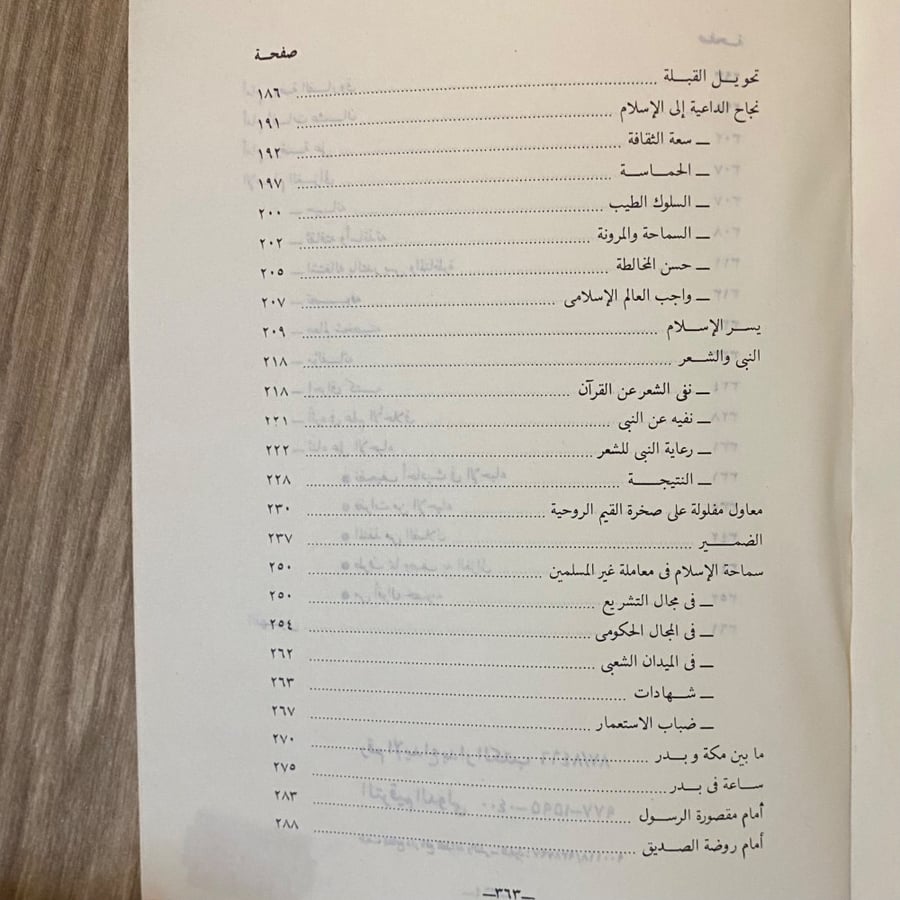 صفحة
تحويل القبلة ... ١٨٦
نجاح الداعية إلى الإسلام ... ١٩١
ــ سعة الثقافة ... ١٩٢
ــ الحماسة ... ١٩٧
ــ السلوك الطيب ... ٢٠٠
ــ السماحة والمرونة ... ٢٠٢
ــ حسن المخالطة ... ٢٠٥
ــ واجب العالم الإسلامى ... ٢٠٧
يسر الإسلام ... ٢٠٩
النبى والشعر ... ٢١٨
ــ نفى الشعر عن القرآن ... ٢١٨
ــ نفيه عن النبى ... ٢٢١
ــ رعاية النبى للشعر ... ٢٢٢
ــ النتيجة ... ٢٢٨
معاول مفلولة على صخرة القيم الروحية ... ٢٣٠
الضمير ... ٢٣٧
سماحة الإسلام فى معاملة غير المسلمين ... ٢٥٠
ــ فى مجال التشريع ... ٢٥٠
ــ فى المجال الحكومى ... ٢٥٤
ــ فى الميدان الشعبى ... ٢٦٢
ــ شهادات ... ٢٦٣
ــ ضباب الاستعمار ... ٢٦٧
ما بين مكة وبدر ... ٢٧٠
ساعة فى بدر ... ٢٧٥
أمام مقصورة الرسول ... ٢٨٣
أمام روضة الصديق ... ٢٨٨
ــ٣٦٣ــ